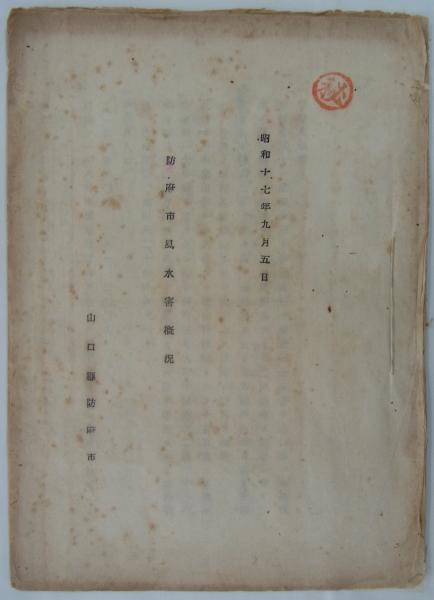 秘
昭和十七年九月五日
防府市風水害概況
山口縣防府市